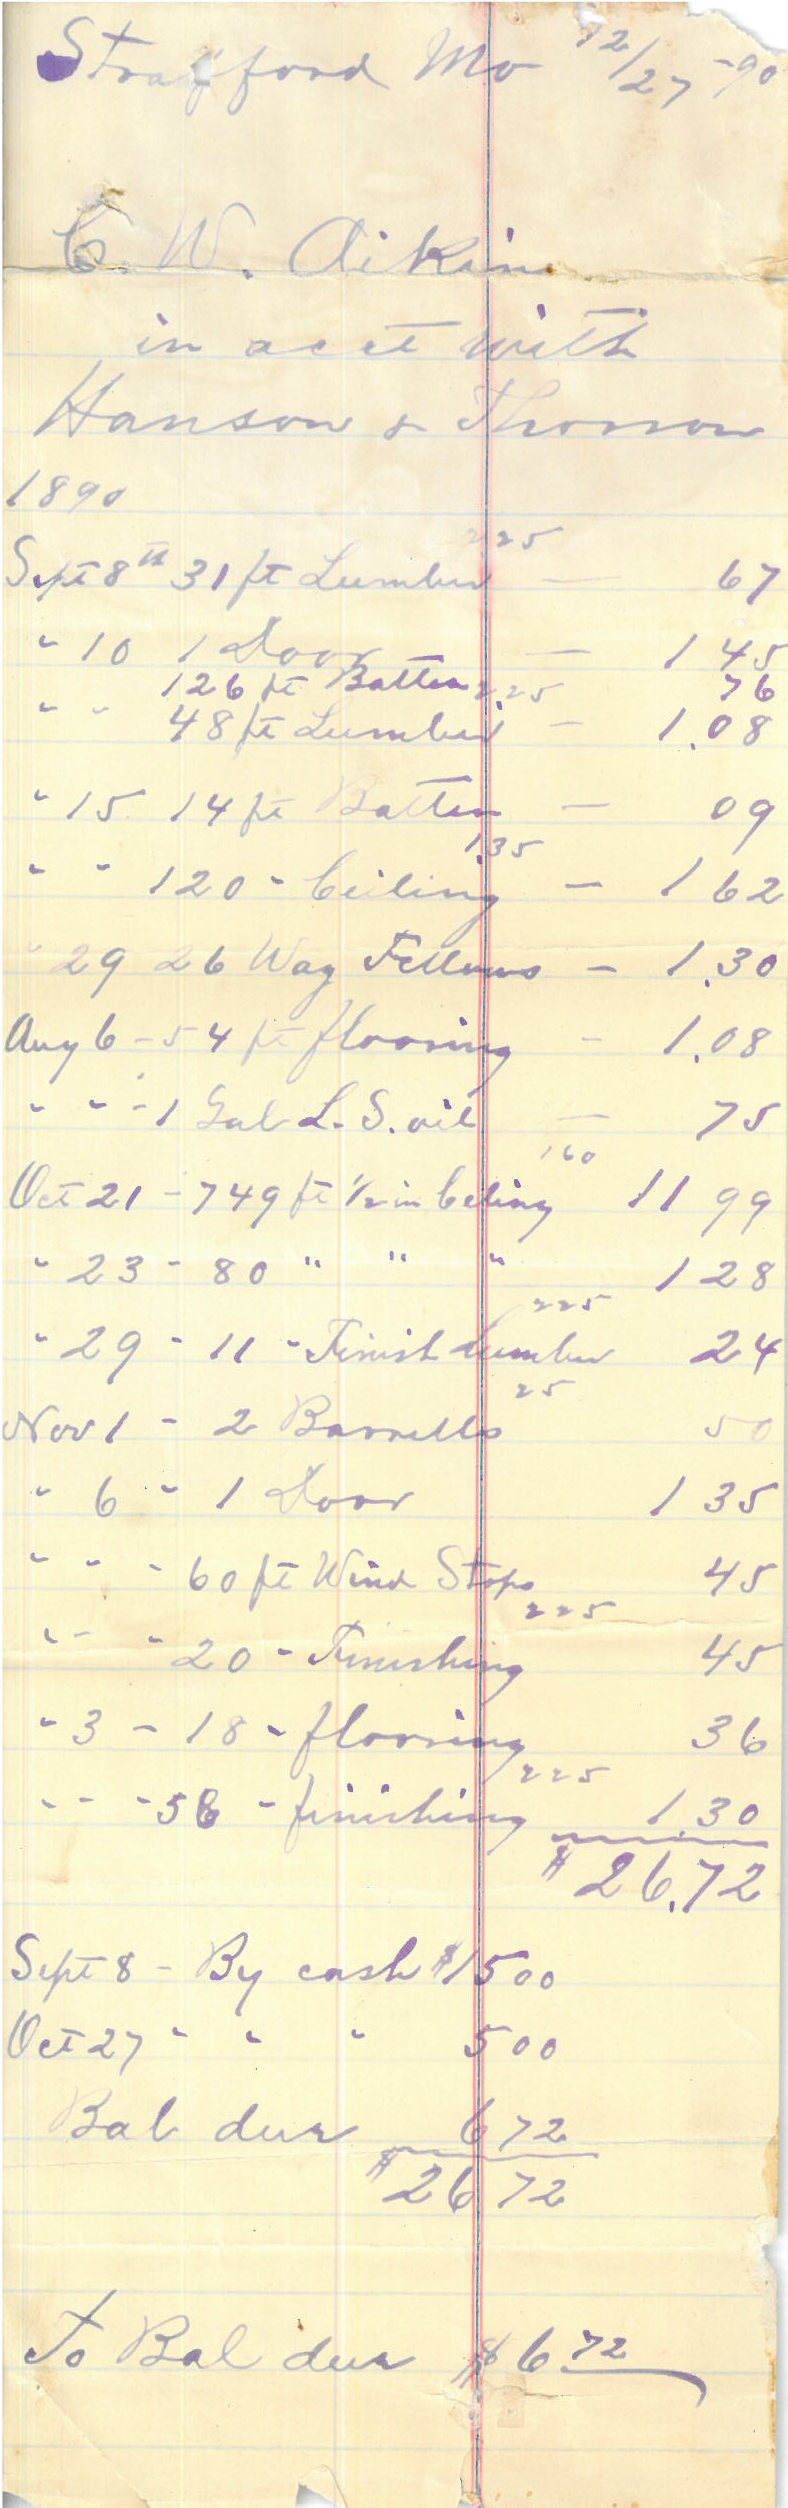 Strafford Mo 12/27 -90
C. W. Aikins
in acct with
Hanson & Thomson
1890
225
Sept 8th 31 ft Lumber — 67
" 10 1 Door — 1 45
126 ft Batten 76
225
" " 48 ft Lumber — 1.08
" 15 14 ft Batten — 09
1.35
" " 120 " Ceiling — 1 62
" 29 26 Wag Fellows — 1.30
Aug 6 - 54 ft flooring - 1.08
" " - 1 Gal L. S. oil — 75
160
Oct 21 - 749 ft 1/2 in Celing 11 99
" 23 - 80 " " " 1 28
225
" 29 - 11 - Finish Lumber 24
25
Nov 1 - 2 Barrells 50
" 6 " 1 Door 1 35
" " - 60 ft Wind Stops 45
225
" " - 20 - Finishing 45
" 3 - 18 - flooring 36
225
" " - 58 - finishing 1.30
$26.72
Sept 8 - By cash $1500
Oct 27 " " " 500
Bal due 672
$26 72
To Bal due $6 72